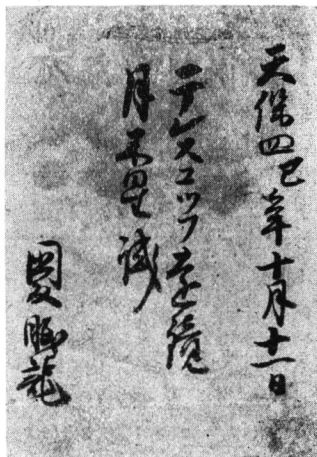 天保四巳年十月十一日
テレスコツフ遠鏡
月木星試
眠龍